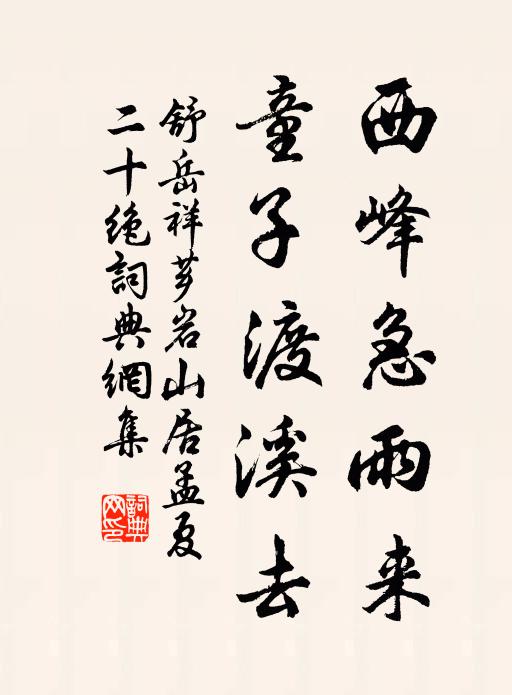 西峰急雨来
童子渡溪去
舒岳祥芗岩山居孟夏
二十绝詞典網集
詞典
网印